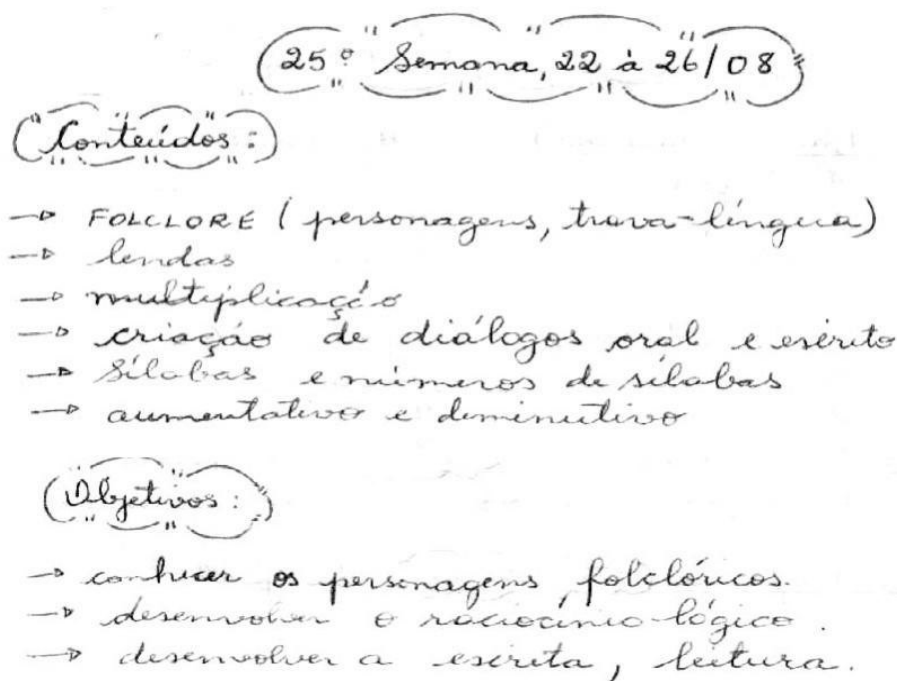 25º Semana, 22 à 26/08
Conteúdos:
→ FOLCLORE (personagens, trava-língua)
→ lendas
→ multiplicação
→ criação de diálogos oral e escrito
→ Sílabas e números de sílabas
→ aumentativo e diminutivo
Objetivos:
→ conhecer os personagens folclóricos.
→ desenvolver o raciocínio-lógico.
→ desenvolver a escrita, leitura.